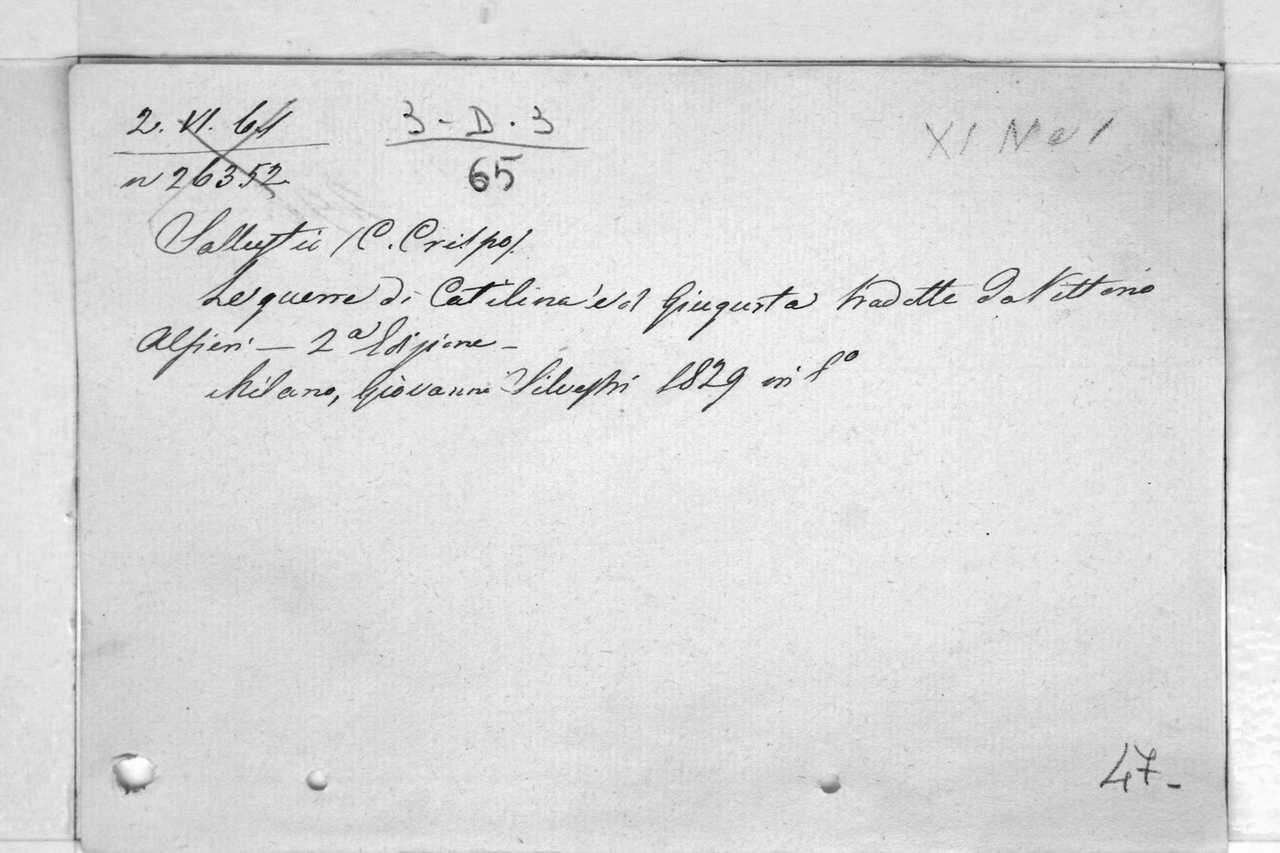 2. VI. 64
3 - D. 3
XI N e 1
n 26352
65
Sallustio (C. Crispo)
Le guerre di Catilina e di Giugurta tradotte da Vittorio
Alfieri — 2ª Edizione —
Milano, Giovanni Silvestri 1829 in 8º
47-